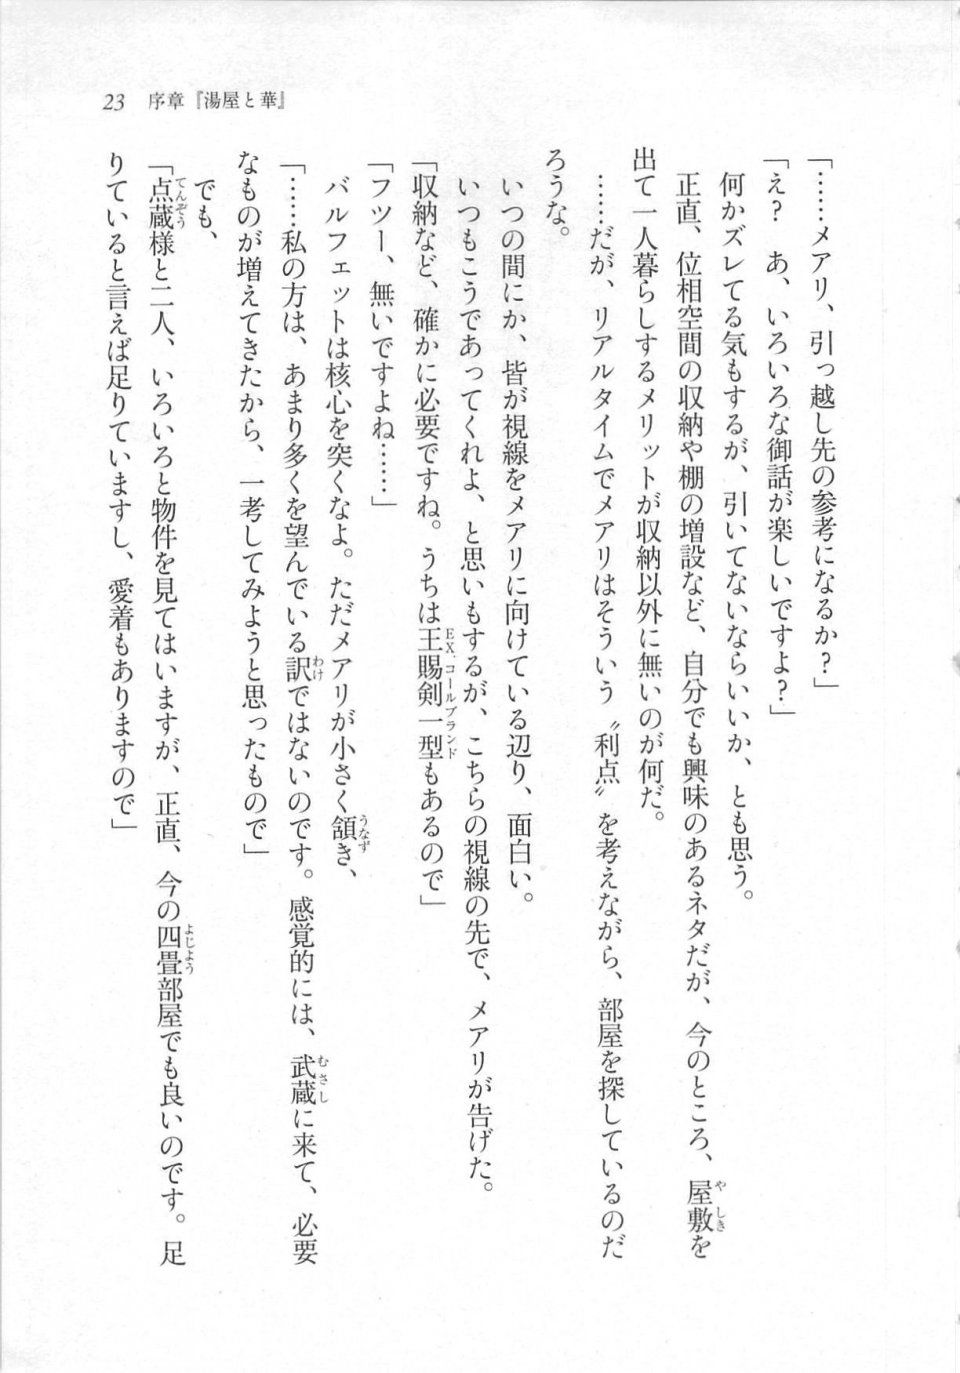 23　序章『湯屋と華』
「……メアリ、引っ越し先の参考になるか？」
「え？　あ、いろいろな御話が楽しいですよ？」
　何かズレてる気もするが、引いてないならいいか、とも思う。
　正直、位相空間の収納や棚の増設など、自分でも興味のあるネタだが、今のところ、屋敷を
出て一人暮らしするメリットが収納以外に無いのが何だ。
　……だが、リアルタイムでメアリはそういう〝利点〟を考えながら、部屋を探しているのだ
ろうな。
　いつの間にか、皆が視線をメアリに向けている辺り、面白い。
　いつもこうであってくれよ、と思いもするが、こちらの視線の先で、メアリが告げた。
「収納など、確かに必要ですね。うちは王賜剣一型もあるので」
「フツー、無いですよね……」
　バルフェットは核心を突くなよ。ただメアリが小さく頷き、
「……私の方は、あまり多くを望んでいる訳ではないのです。感覚的には、武蔵に来て、必要
なものが増えてきたから、一考してみようと思ったもので」
　でも、
「点蔵様と二人、いろいろと物件を見てはいますが、正直、今の四畳部屋でも良いのです。足
りていると言えば足りていますし、愛着もありますので」